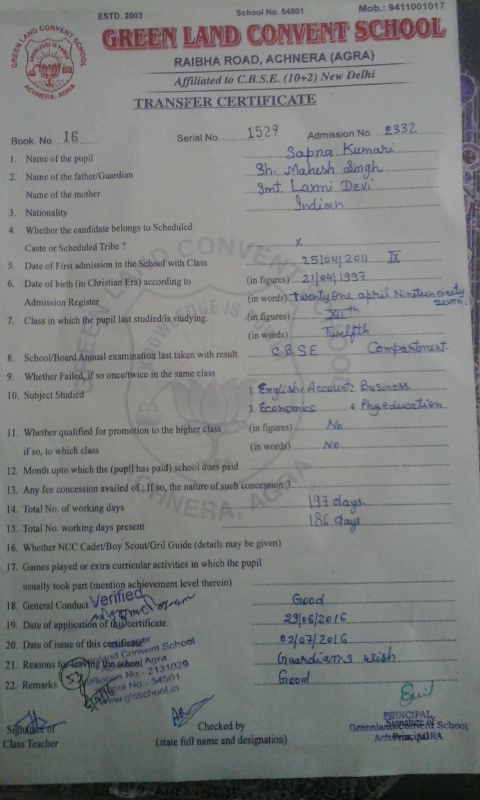 ESTD. 2003 School No. 54501 Mob.: 9411001017
GREEN LAND CONVENT SCHOOL
RAIBHA ROAD, ACHNERA (AGRA)
Affiliated to C.B.S.E. (10+2) New Delhi
TRANSFER CERTIFICATE
Book. No. 16 Serial No. 1529 Admission No. 2332
1. Name of the pupil Sapna Kumari
2. Name of the father/Guardian Sh. Mahesh Singh
Name of the mother Smt. Laxmi Devi
3. Nationality Indian
4. Whether the candidate belongs to Scheduled
Caste or Scheduled Tribe ? x
5. Date of First admission in the School with Class 25/04/2011 IX
6. Date of birth (in Christian Era) according to (in figures) 21/04/1997
Admission Register (in words) Twenty One april Ninteen ninety seven.
7. Class in which the pupil last studied/is studying. (in figures) XIIth
(in words) Twelfth
8. School/Board Annual examination last taken with result CBSE Compartment.
9. Whether Failed, if so once/twice in the same class
10. Subject Studied 1. English 2. Account Business
3. Economics 4. Phy education
11. Whether qualified for promotion to the higher class (in figures) No
if so, to which class (in words) No
12. Month upto which the (pupil has paid) school dues paid
13. Any fee concession availed of : If so, the nature of such concession
14. Total No. of working days 197 days.
15. Total No. of working days present 186 days
16. Whether NCC Cadet/Boy Scout/Gril Guide (details may be given)
17. Games played or extra curricular activities in which the pupil
usually took part (mention achievement level therein)
18. General Conduct Good
Verified
19. Date of application of this certificate. 29/06/2016
20. Date of issue of this certificate 02/07/2016
21. Reasons for leaving the school Guardian's wish
22. Remarks Good
Greenland Convent School
Achnera Agra
Affiliation No:- 2131029
School No:- 54501
www.glcschool.in
Signature of
Class Teacher
Checked by
(state full name and designation)
PRINCIPAL
Signature of
Greenland Convent School
Achnera, AGRA
Principal
GREEN LAND CONVENT SCHOOL
ACHNERA, AGRA